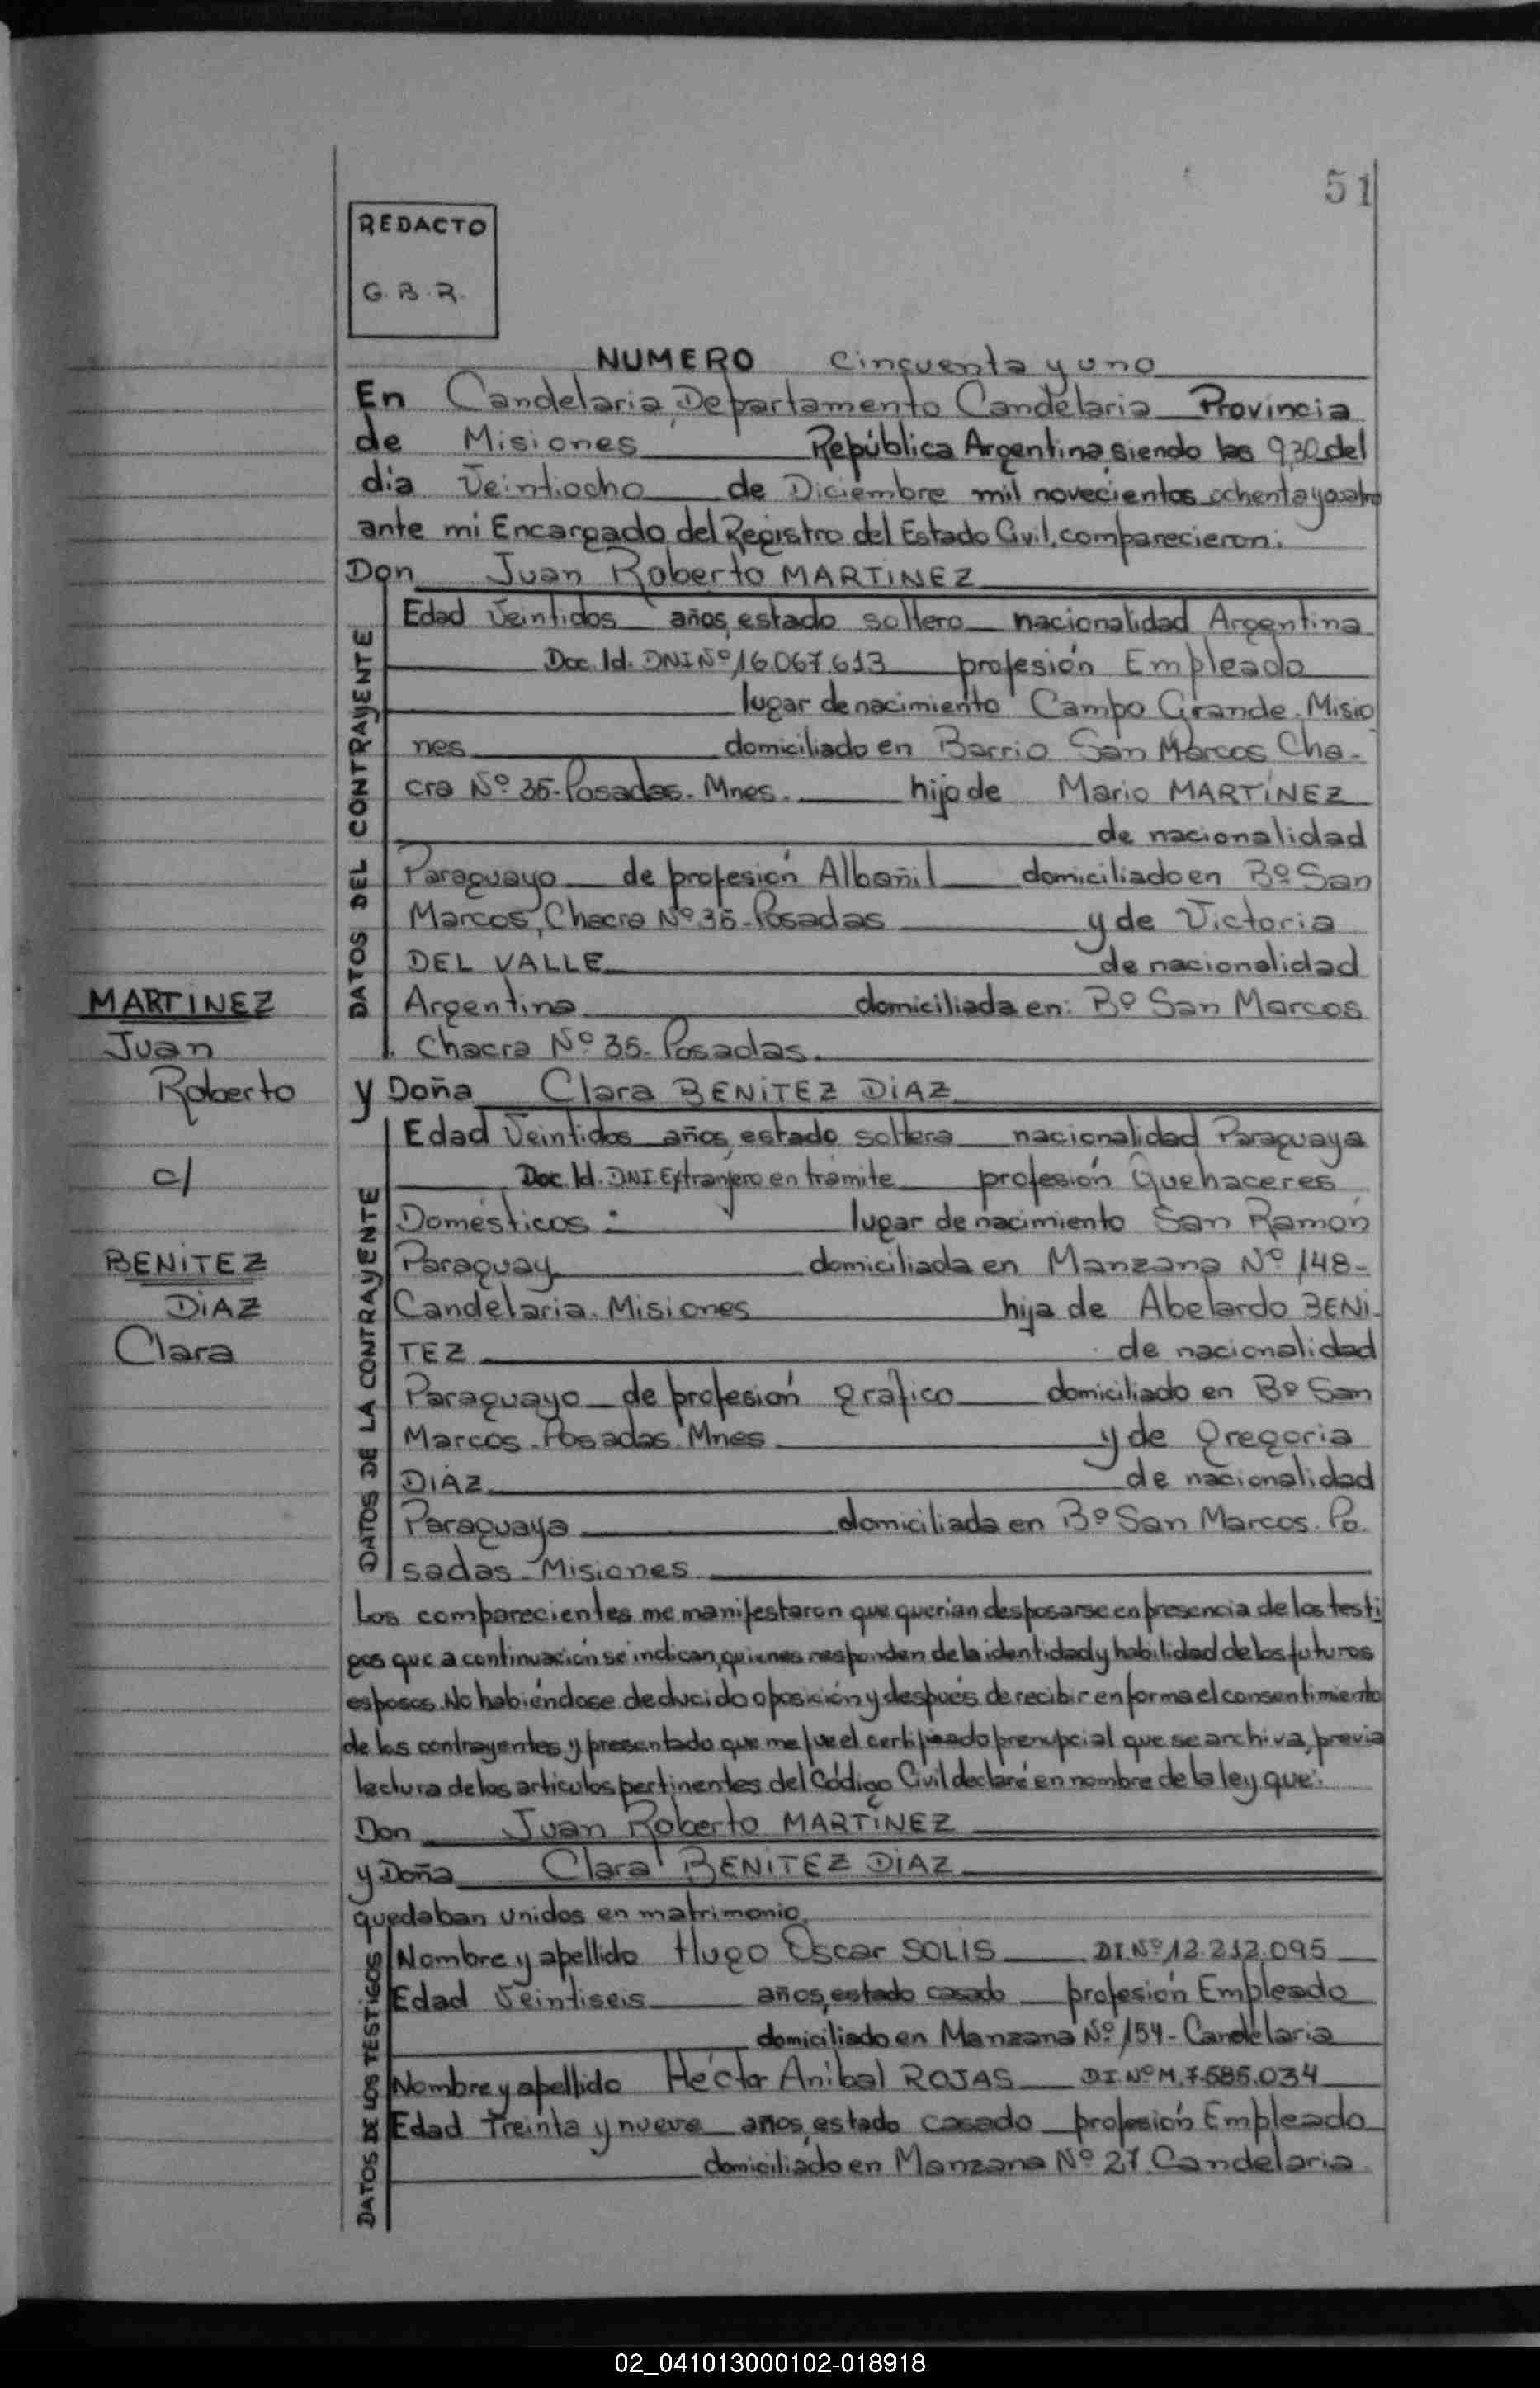 51
REDACTO
G. B. R.
NUMERO cincuenta y uno
En Candelaria, Departamento Candelaria Provincia
de Misiones República Argentina, siendo las 9,30 del
día Veintiocho de Diciembre mil novecientos ochenta y cuatro
ante mi Encargado del Registro del Estado Civil, comparecieron:
Don Juan Roberto MARTINEZ
DATOS DEL CONTRAYENTE
Edad Veintidos años, estado soltero nacionalidad Argentina
Doc. Id. DNI Nº 16.067.613 profesión Empleado
lugar de nacimiento Campo Grande. Misio
nes domiciliado en Barrio San Marcos Cha-
cra Nº 35- Posadas. Mnes. hijo de Mario MARTÍNEZ
de nacionalidad
Paraguayo de profesión Albañil domiciliado en Bº San
Marcos, Chacra Nº 35- Posadas y de Victoria
DEL VALLE de nacionalidad
Argentina domiciliada en: Bº San Marcos
Chacra Nº 35. Posadas.
MARTINEZ
Juan
Roberto
c/
BENITEZ
DIAZ
Clara
y Doña Clara BENITEZ DIAZ
DATOS DE LA CONTRAYENTE
Edad Veintidos años, estado soltera nacionalidad Paraguaya
Doc. Id. DNI Extranjero en tramite profesión Quehaceres
Domésticos. lugar de nacimiento San Ramón
Paraguay domiciliada en Manzana Nº 148-
Candelaria. Misiones hija de Abelardo BENI-
TEZ de nacionalidad
Paraguayo de profesión grafico domiciliado en Bº San
Marcos. Posadas. Mnes y de Gregoria
DÍAZ de nacionalidad
Paraguaya domiciliada en Bº San Marcos. Po.
sadas- Misiones
Los comparecientes me manifestaron que querian desposarse en presencia de los testi
gos que a continuación se indican, quienes responden de la identidad y habilidad de los futuros
esposos. No habiéndose deducido oposición y después de recibir en forma el consentimiento
de los contrayentes y presentado que me fue el certificado prenupcial que se archiva, previa
lectura de los articulos pertinentes del Código Civil declaré en nombre de la ley que:
Don Juan Roberto MARTÍNEZ
y Doña Clara BENITEZ DIAZ
quedaban unidos en matrimonio.
DATOS DE LOS TESTIGOS
Nombre y apellido Hugo Oscar SOLIS DI Nº 12.212.095
Edad Veintiseis años, estado casado profesión Empleado
domiciliado en Manzana Nº 154- Candelaria
Nombre y apellido Héctor Anibal ROJAS DI. Nº M. 7.585.034
Edad Treinta y nueve años, estado casado profesión Empleado
domiciliado en Manzana Nº 27 Candelaria
02_041013000102-018918